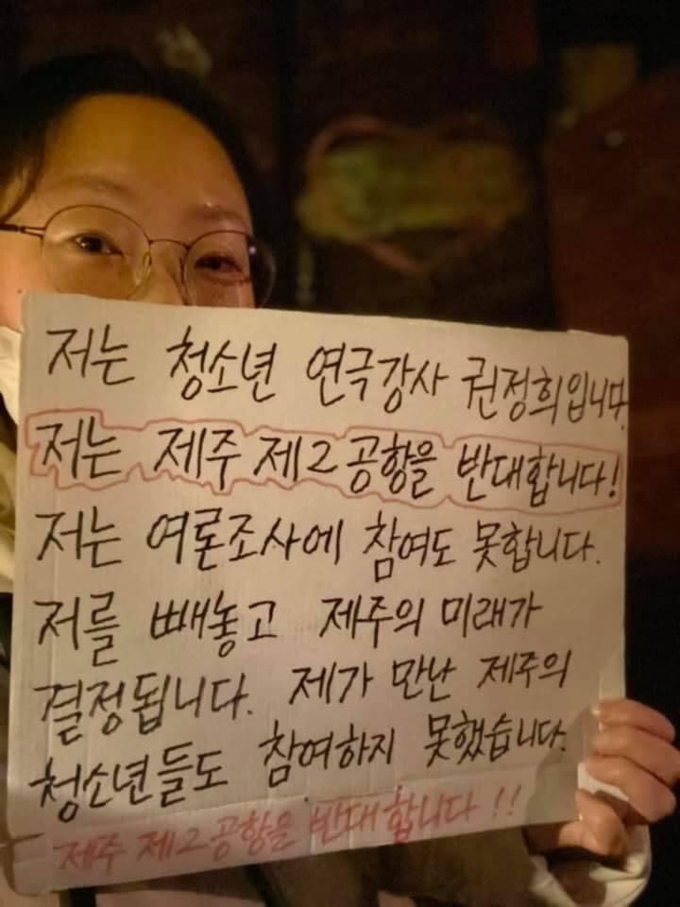 저는 청소년 연극강사 권정희입니다.
저는 제주 제2공항을 반대합니다!
저는 여론조사에 참여도 못합니다.
저를 빼놓고 제주의 미래가
결정됩니다. 제가 만난 제주의
청소년들도 참여하지 못했습니다.
제주 제2공항을 반대합니다!!